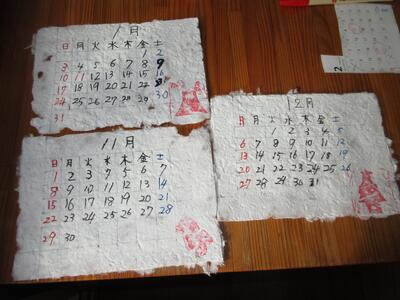 1月
日 月 火 水 木 金 土
1 2
3 4 5 6 7 8 9
10 11 12 13 14 15 16
17 18 19 20 21 22 23
24 25 26 27 28 29 30
31
12月
日 月 火 水 木 金 土
1 2 3 4 5
6 7 8 9 10 11 12
13 14 15 16 17 18 19
20 21 22 23 24 25 26
27 28 29 30 31
11月
日 月 火 水 木 金 土
1 2 3 4 5 6 7
8 9 10 11 12 13 14
15 16 17 18 19 20 21
22 23 24 25 26 27 28
29 30
2